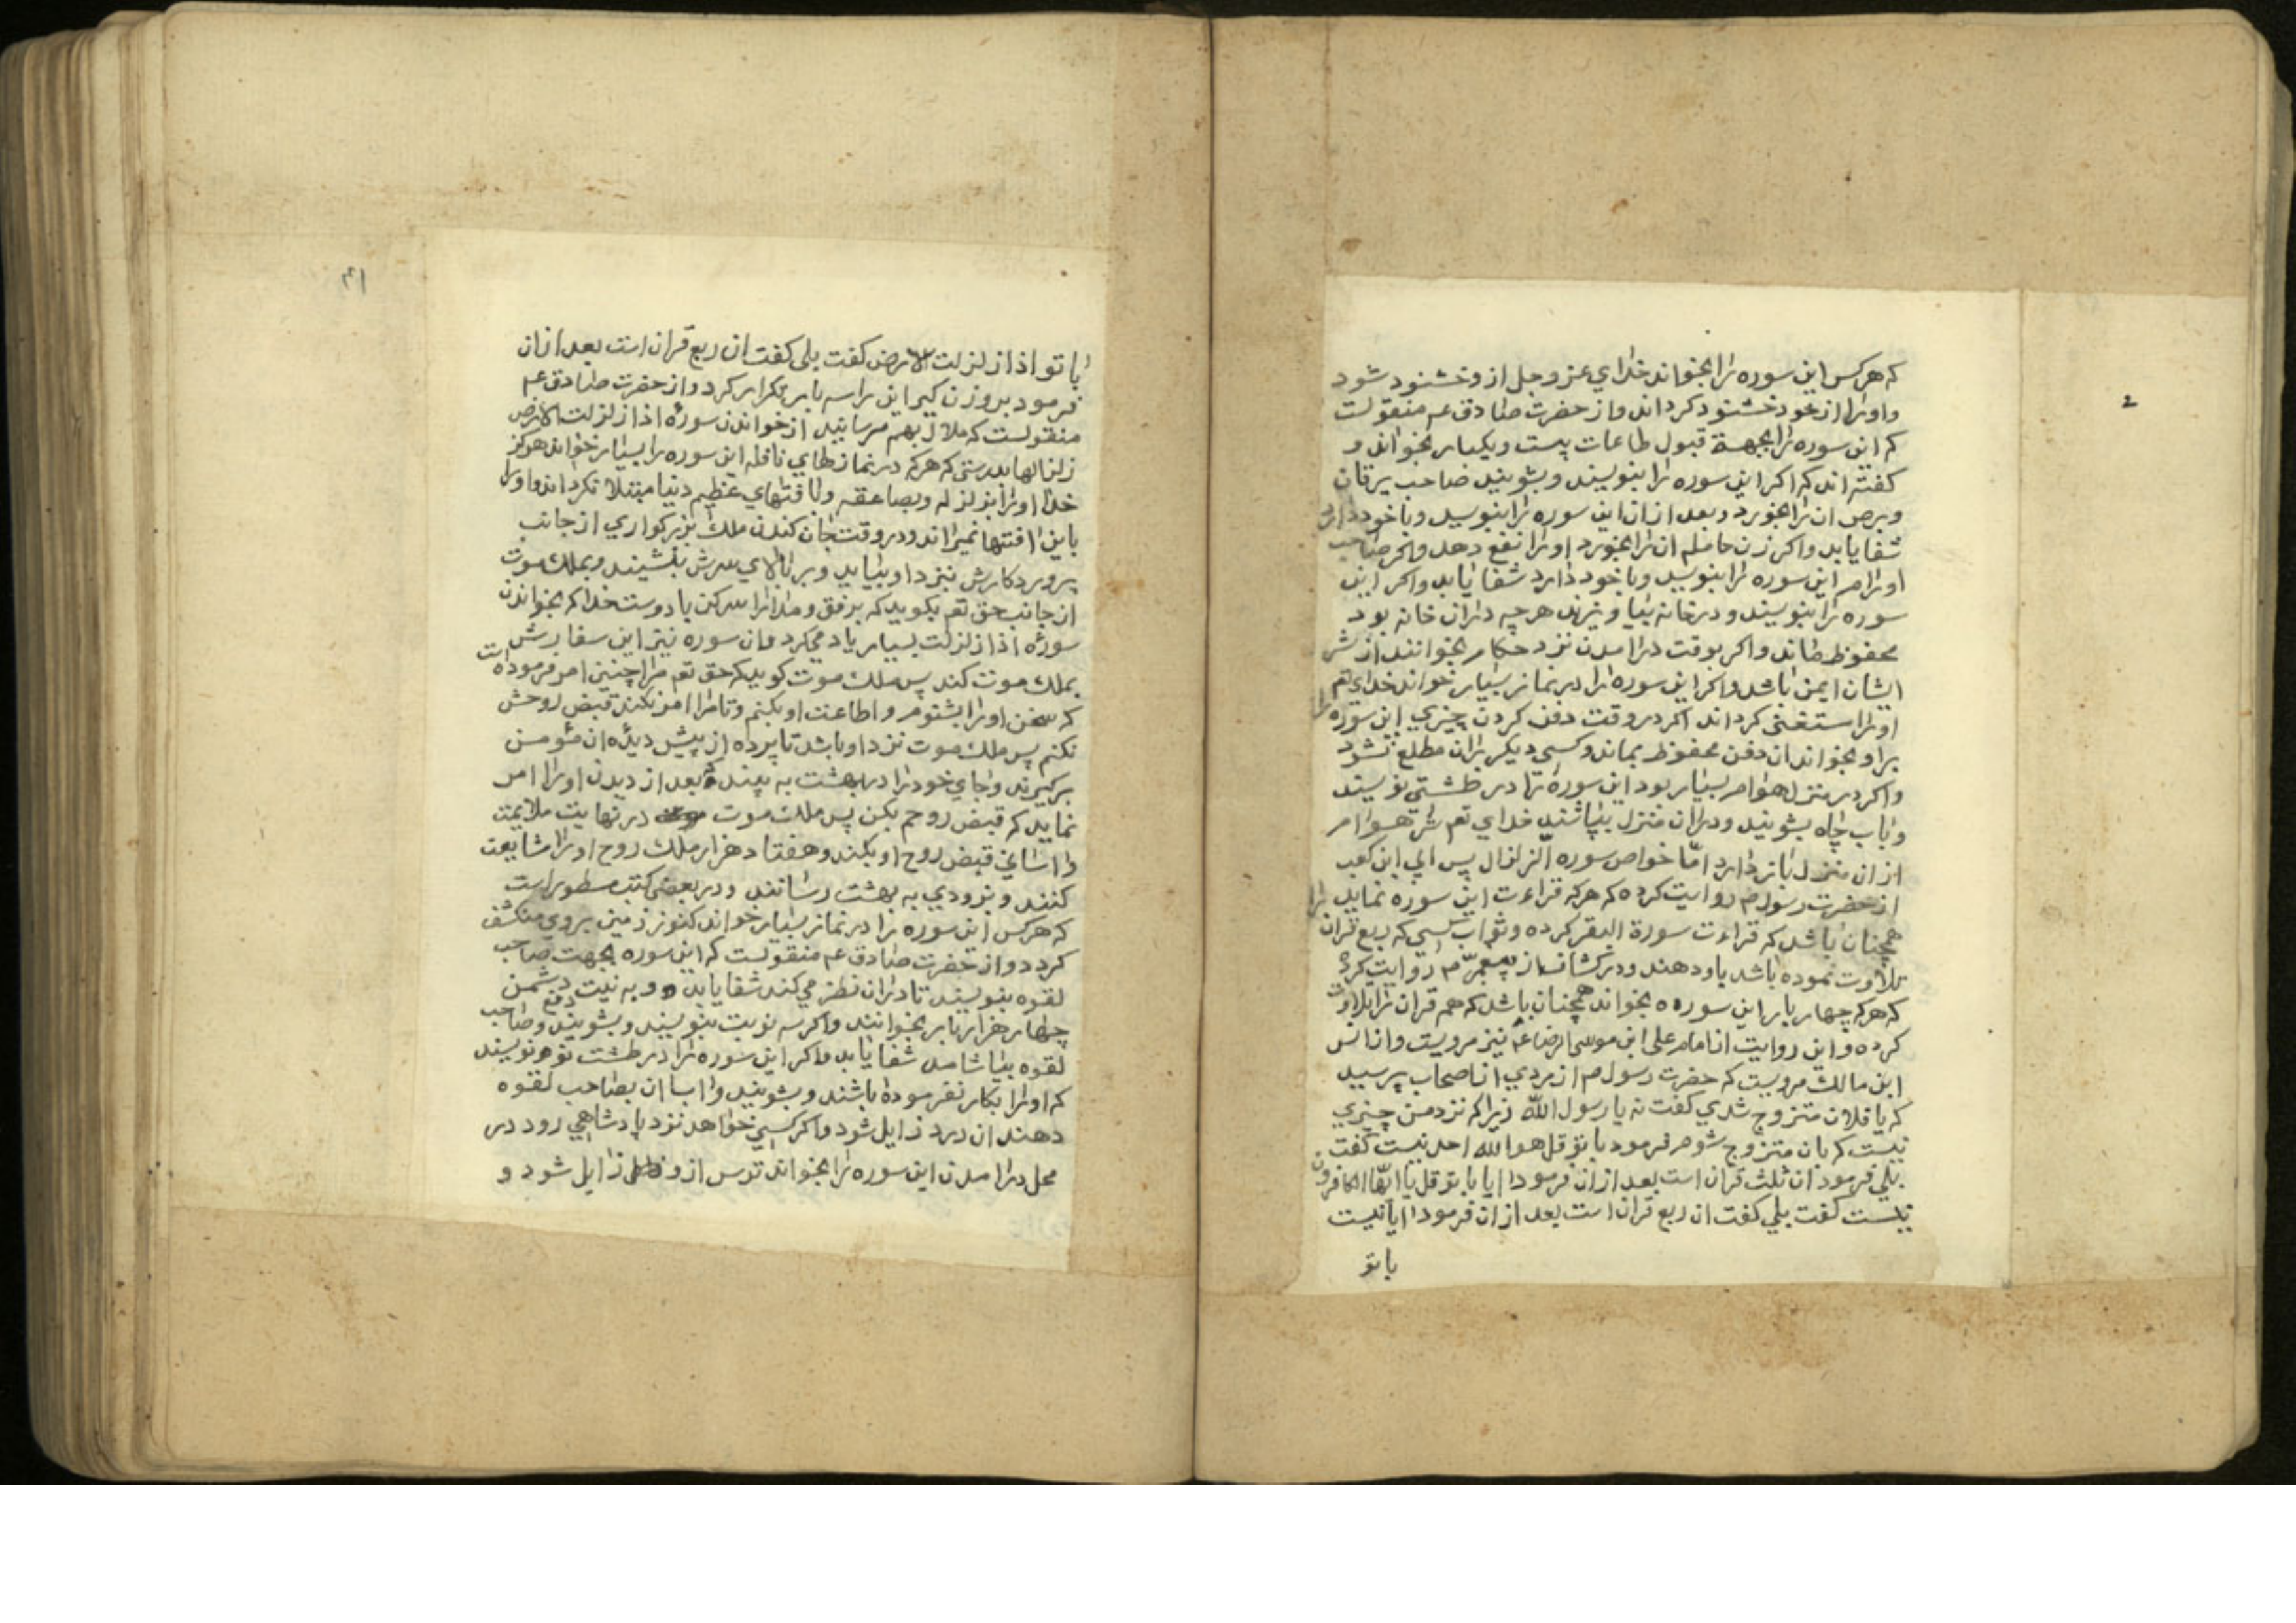 که هرکس این سوره را بخواند خدای عز و جل ازو خشنود شود
و اورا از خود خشنود کرداند و از حضرت صادق عم منقولست
که این سوره را بجهة قبول طاعات بیست و یکبار بخواند و
کفته اند که اکر این سوره را بنویسند و بشویند صاحب یرقان
و برص ان را بخورد و بعد ازان این سوره را بنویسد و باخود دارد
شفا یابد و اکر زن حامله ان را بخورد اورا نفع دهد و اکر صاحب
این سوره را بنویسد و باخود دارد شفا یابد و اکر این
سوره را بنویسند و در خانه بیاویزند هرچه دران خانه بود
محفوظ ماند و اکر بوقت درامدن نزد حکام بخوانند از شر
ایشان ایمن باشد و اکر این سوره را در نماز بسیار خواند خدای تعم
اورا مستغنی کرداند اکر در وقت دفن کردن چیزی این سوره را
براو بخواند ان دفن محفوظ بماند و کسی دیکر بران مطلع نشود
و اکر در منزل هوام بسیار بود این سوره را در طشتی نویسند
و باب چاه بشویند و دران منزل بپاشند خدای تعم شر هوام
ازان منزل باز دارد امّا خواص سوره الزلزال پس ابی ابن کعب
از حضرت رسول م روایت کرده که هرکه قراءت این سوره نماید
همچنان باشد که قراءت سورة البقر کرده و ثواب کسی که ربع قران را
تلاوت نموده باشد باو دهند و در کشاف از پیغمبر م روایت کرده
که هرکه چهار بار این سوره بخواند همچنان باشد که همه قران را تلاوت
کرده و این روایت از امام علی ابن موسی الرضا عم نیز مرویست و از انس
ابن مالک مرویست که حضرت رسول م از مردی از اصحاب پرسید
که یا فلان متزوج شدی کفت نه یا رسول اللّه زیرا که نزد من چیزی
نیست که بان متزوج شوم فرمود با تو قل هو الله احد نیست کفت
بلی فرمود ان ثلث قران است بعد ازان فرمود ایا با تو قل یا ایّها الکافرون
نیست کفت بلی کفت ان ربع قران است بعد ازان فرمود ایا نیست
با تو
۴۱
با تو اذا زلزلت الارض کفت بلی کفت ان ربع قران است بعد ازان
فرمود برو زن کیر این را سه بار تکرار کرد و از حضرت صادق عم
منقولست که ملال بهم مرسانید از خواندن سورهٔ اذا زلزلت الارض
زلزالها بدرستی که هرکه در نمازهای نافله این سوره را بسیار خواند هرکز
خدا اورا بزلزله و بصاعقه و بافتهای عظیم دنیا مبتلا نکرداند و اورا
باین افتها نمیراند و در وقت جان کندن ملک بزرکواری از جانب
پروردکارش بنزد او بیاید و بر بالای سرش بنشیند و بملک موت
از جانب حق تعم بکوید که برفق و مدارا سر کن با دوست خدا که بخواندن
سورهٔ اذا زلزلت بسیار یاد میکرد و ان سوره نیز این سفارش
بملک موت کند پس ملک موت کوید که حق تعم مرا چنین امر فرموده است
که سخن اورا بشنوم و اطاعت او بکنم و تا مرا امر نکند قبض روحش
نکنم پس ملک موت نزد او باشد تا پرده از پیش دیدهٔ ان مؤمن
برکیرند و جای خودرا در بهشت به بیند و بعد از دیدن اورا امر
نماید که قبض روحم بکن پس ملک موت در نهایت ملایمت
و اسانی قبض روح او بکند و هفتاد هزار ملک روح اورا مشایعت
کنند و بزودی به بهشت رسانند و در بعضی کتب مسطور است
که هرکس این سوره را در نماز بسیار خواند کنوز زمین بروی منکشف
کردد و از حضرت صادق عم منقولست که این سوره بجهت صاحب
لقوه بنویسند تا دران نظر می کند شفا یابد و به نیت دفع دشمن
چهار هزار بار بخوانند و اکر سه نوبت بنویسند و بشویند و صاحب
لقوه بیاشامد شفا یابد و اکر این سوره را در طشت نو نویسند
که اورا بکار نفرموده باشند و بشویند و اب ان بصاحب لقوه
دهند ان درد زایل شود و اکر کسی خواهد نزد پادشاهی رود در
محل درامدن این سوره را بخواند ترس ازو زایل شود و